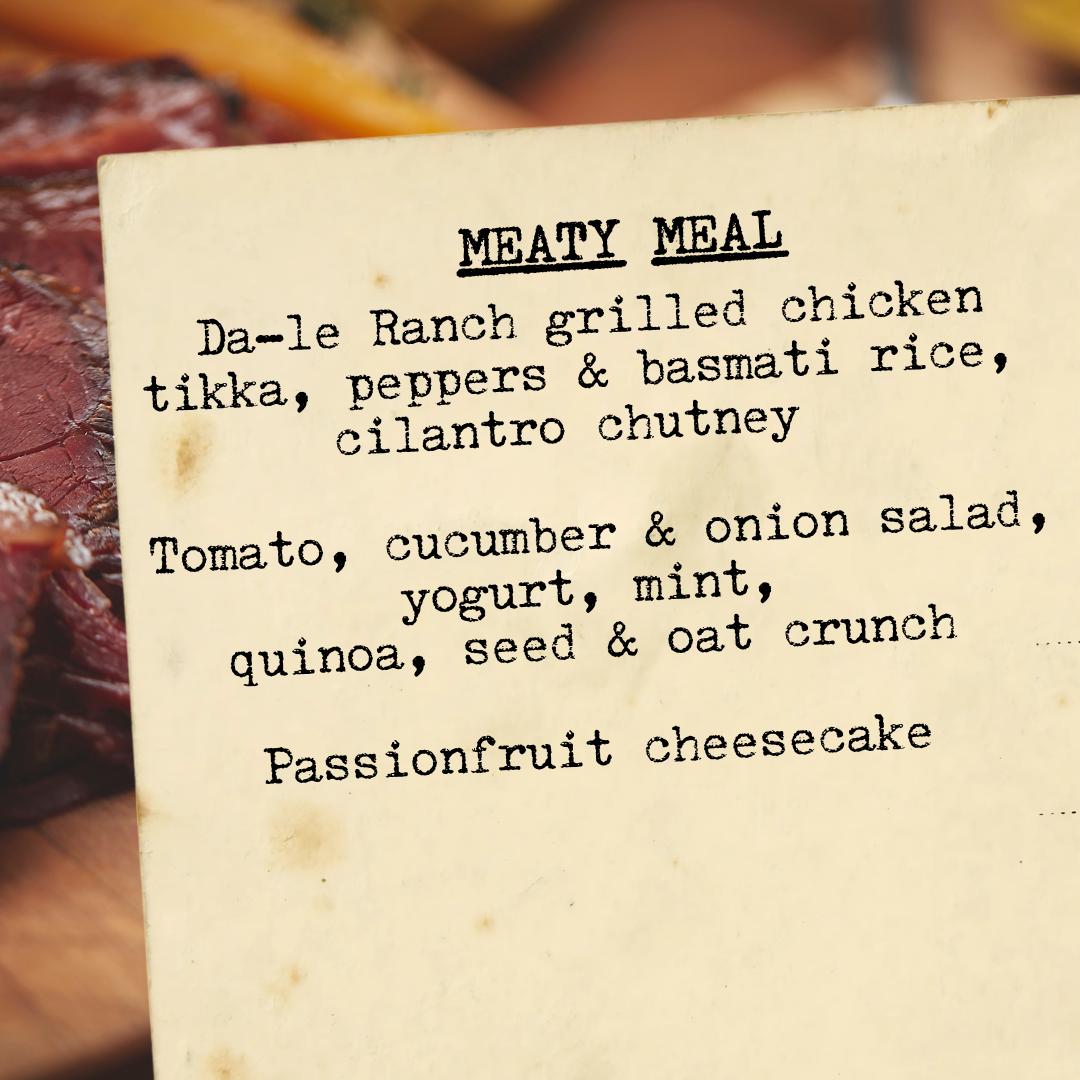 MEATY MEAL
Da-le Ranch grilled chicken
tikka, peppers & basmati rice,
cilantro chutney
Tomato, cucumber & onion salad,
yogurt, mint,
quinoa, seed & oat crunch
Passionfruit cheesecake